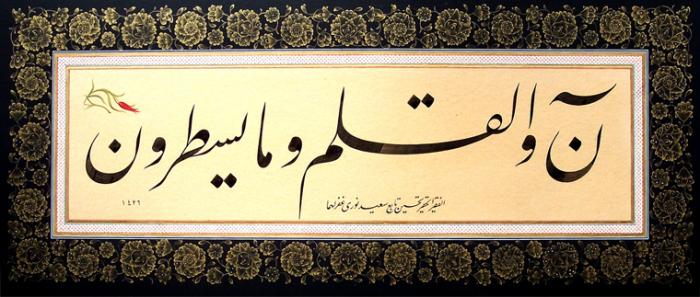 نۤ والقلم وما يسطرون
الفقير الحقير تحسين تابع سعيد نوري غفر لهما
١٤٢٦